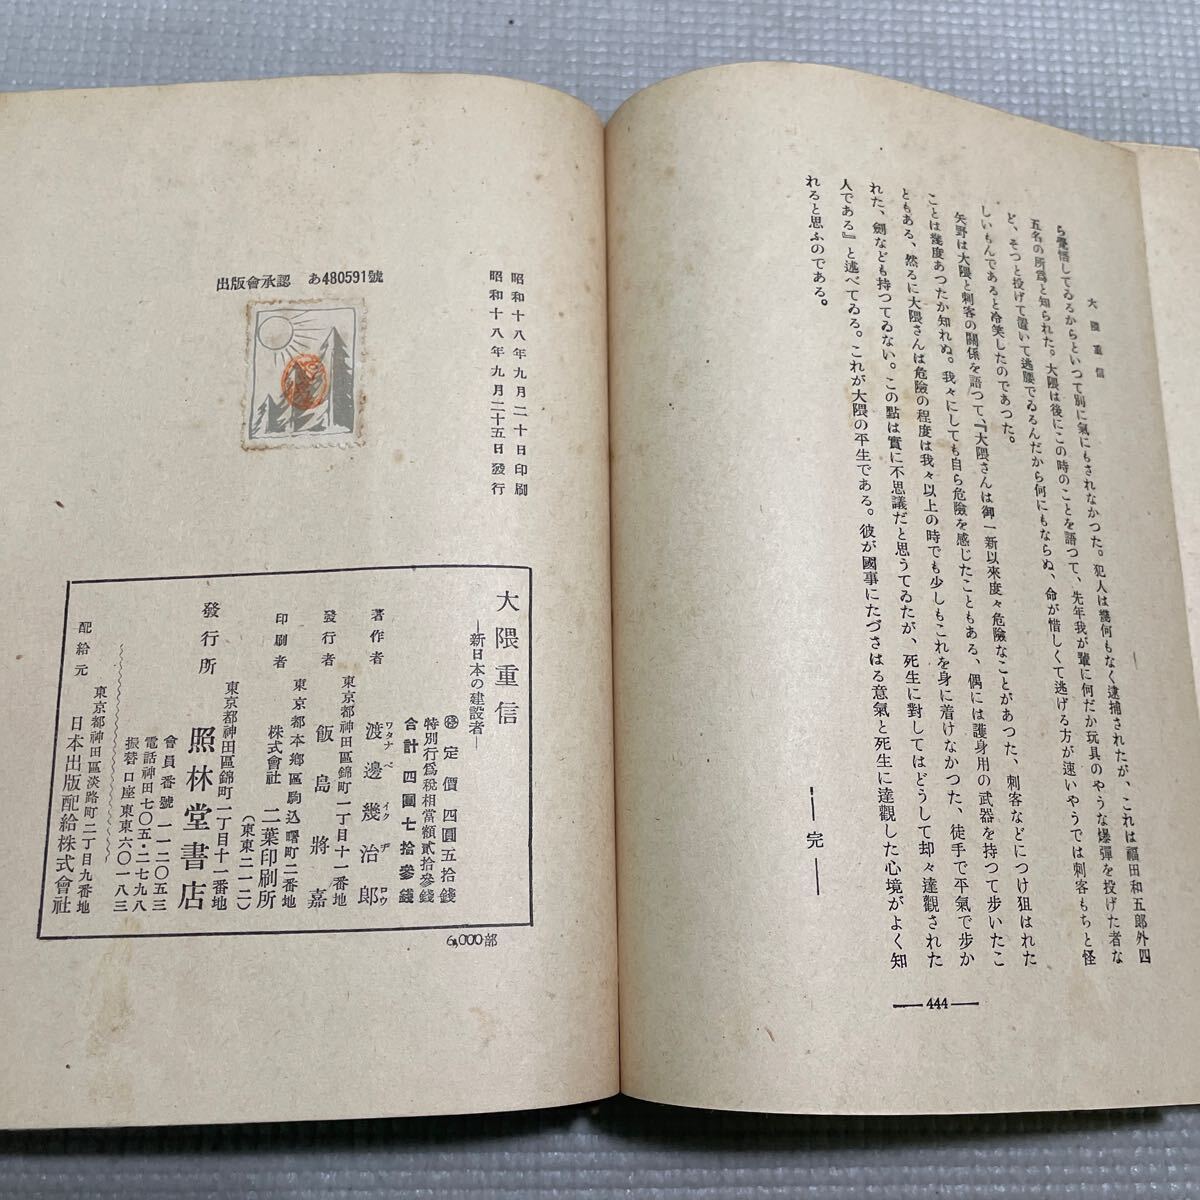 大隈重信
ら覺悟してゐるからといつて別に氣にもされなかつた。犯人は幾何もなく逮捕されたが、これは福田和五郎外四
五名の所爲と知られた。大隈は後にこの時のことを語つて、先年我が輩に何だか玩具のやうな爆彈を投げた者な
ど、そつと投げて置いて逃腰でゐるんだから何にもならぬ、命が惜しくて逃げる方が速いやうでは刺客もちと怪
しいもんであると冷笑したのであつた。
矢野は大隈と刺客の關係を語つて、『大隈さんは御一新以來度々危險なことがあつた、刺客などにつけ狙はれた
ことは幾度あつたか知れぬ。我々にしても自ら危險を感じたこともある、偶には護身用の武器を持つて歩いたこ
ともある、然るに大隈さんは危險の程度は我々以上の時でも少しもこれを身に着けなかつた、徒手で平氣で歩か
れた、劍なども持つてゐない。この點は實に不思議だと思うてゐたが、死生に對してはどうして却々達觀された
人である』と述べてゐる。これが大隈の平生である。彼が國事にたづさはる意氣と死生に達觀した心境がよく知
れると思ふのである。
――完――
―444―
昭和十八年九月二十日印刷
昭和十八年九月二十五日發行
出版會承認 あ480591號
大隈重信
―新日本の建設者―
定價四圓五拾錢
特別行爲税相當額貳拾參錢
合計四圓七拾參錢
著作者 渡邊幾治郎
ワタナベイクヂロウ
東京都神田區錦町一丁目十一番地
發行者 飯島將嘉
東京都本鄕區駒込曙町二番地
印刷者 株式會社 二葉印刷所
(東東二一二)
東京都神田區錦町一丁目十一番地
發行所 照林堂書店
會員番號 一一二〇五三
電話神田七〇五・二七九八
振替口座東東六〇一八三
東京都神田區淡路町二丁目九番地
配給元 日本出版配給株式會社
6,000部